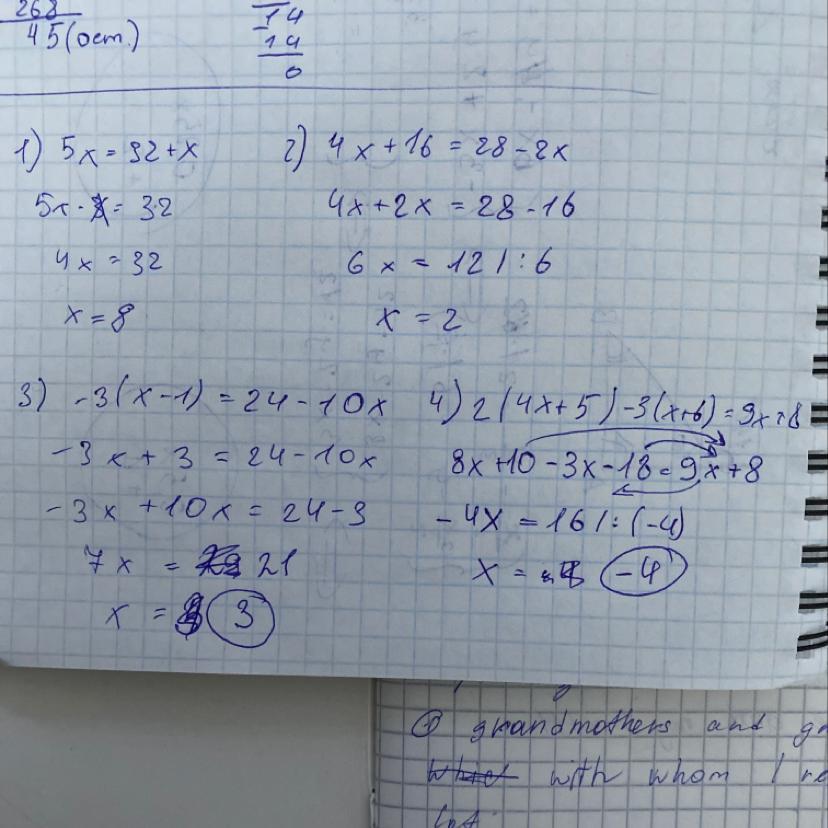 268
45 (ост.)
14
14
0
1) 5x = 32 + x
5x - x = 32
4x = 32
x = 8
2) 4x + 16 = 28 - 2x
4x + 2x = 28 - 16
6x = 12 | : 6
x = 2
3) -3(x - 1) = 24 - 10x
-3x + 3 = 24 - 10x
-3x + 10x = 24 - 3
7x = 21
x = 3
4) 2(4x + 5) - 3(x + 6) = 9x + 8
8x + 10 - 3x - 18 = 9x + 8
-4x = 16 | : (-4)
x = -4
① grandmothers and
with whom I